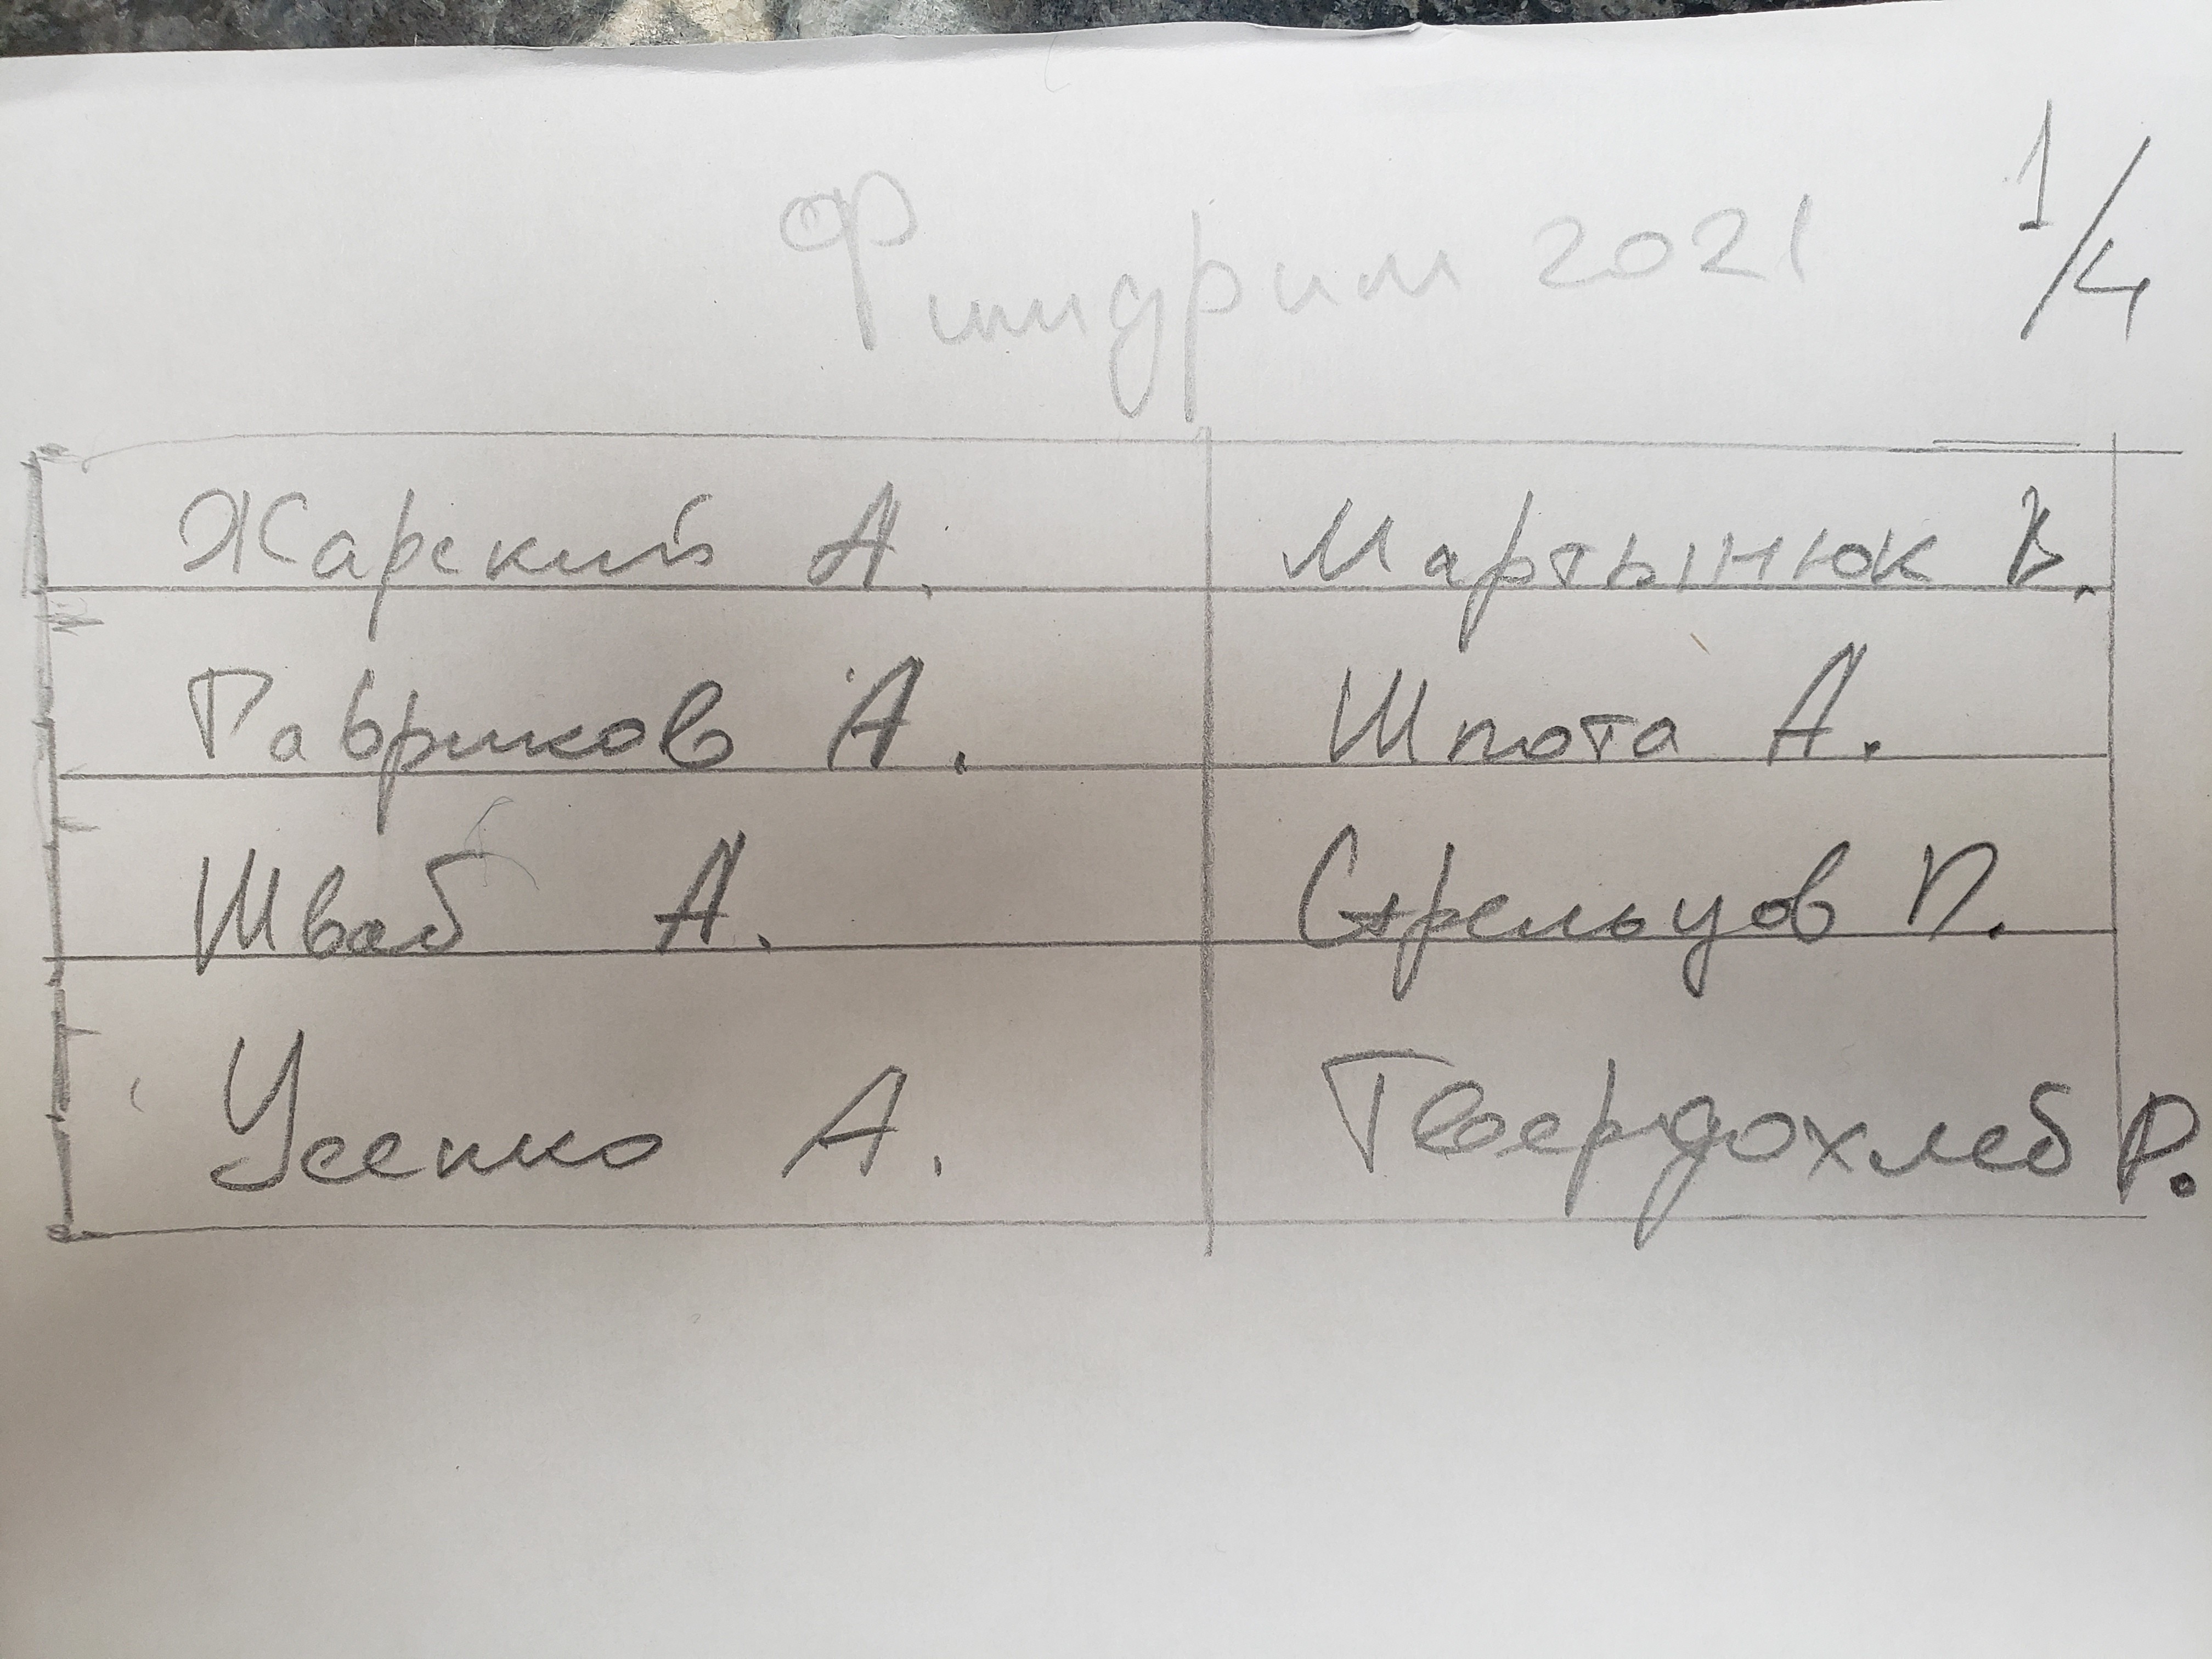 Фишдрим 2021 1/4
Жарский А. Мартынюк В.
Гавриков А. Шпота А.
Шваб А. Стрельцов П.
Усенко А. Твердохлеб Р.